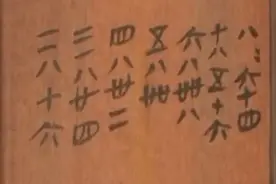 八〻六十四
七八五十六
六八卌八
五八卌
四八卅二
三八廿四
二八十六